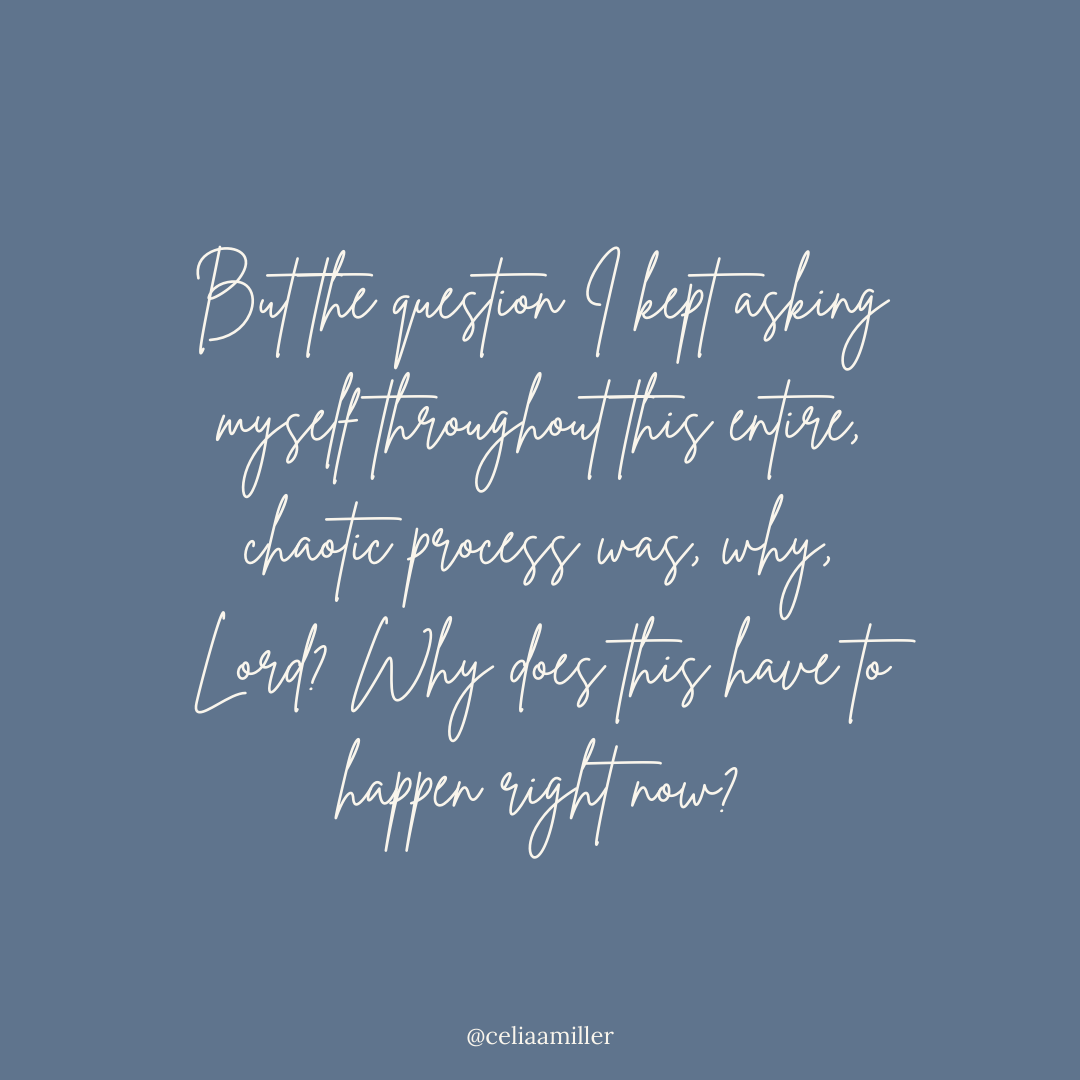 But the question I kept asking
myself throughout this entire,
chaotic process was, why,
Lord? Why does this have to
happen right now?
@celiaamiller